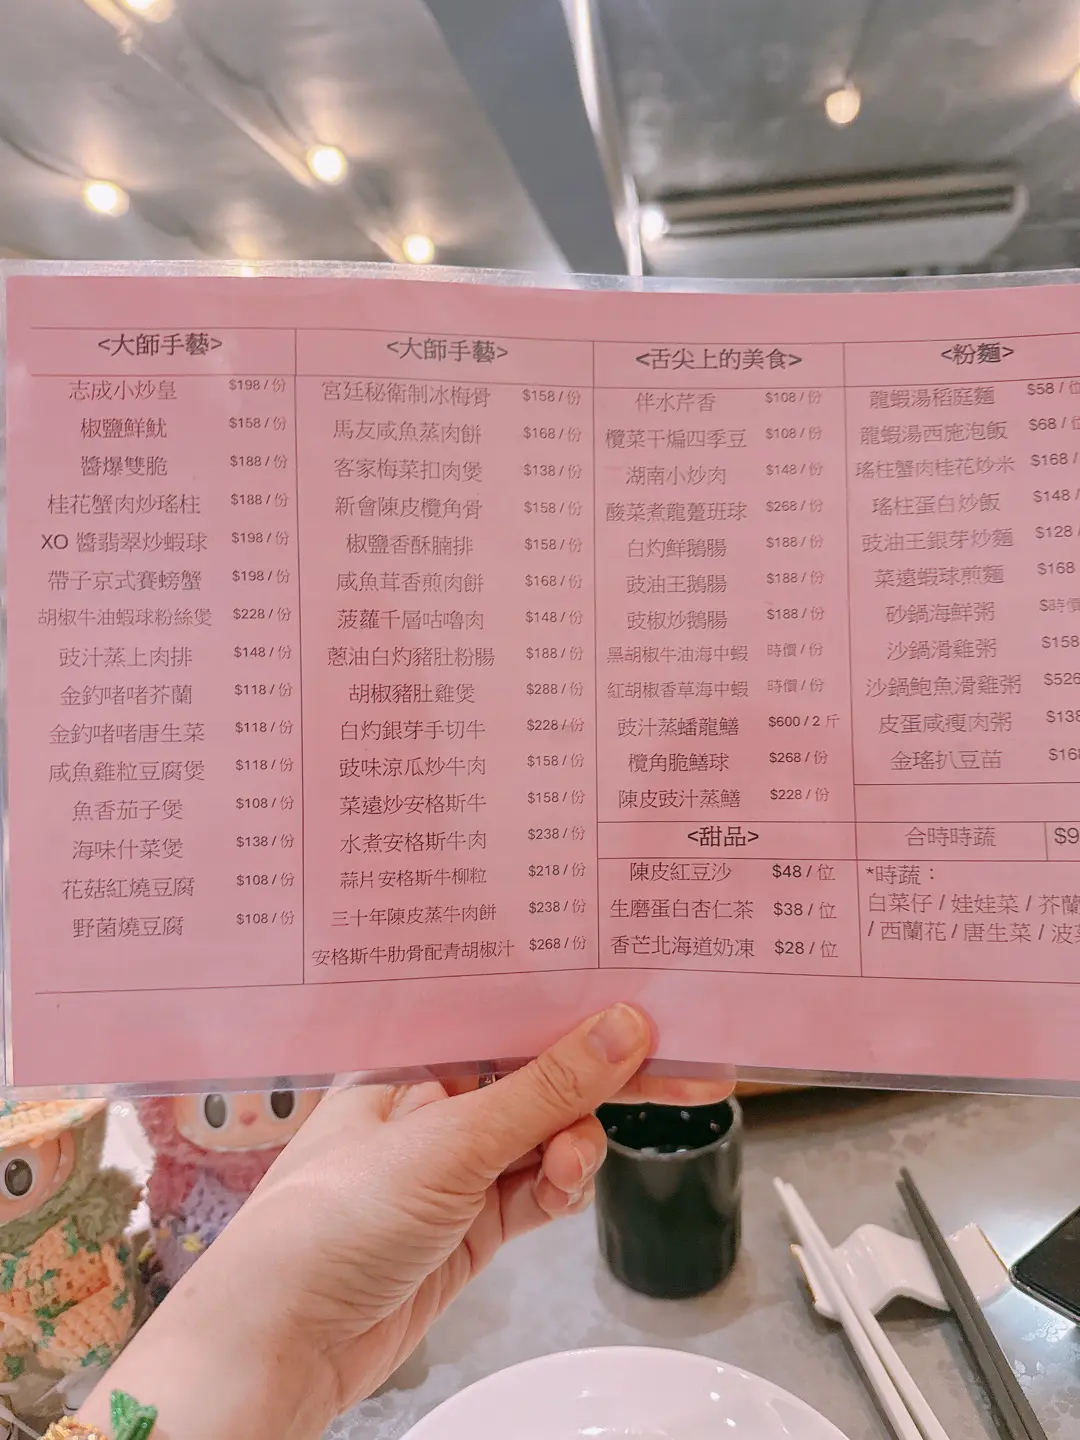 <大師手藝>
志成小炒皇 $198 / 份
椒鹽鮮魷 $158 / 份
醬爆雙脆 $188 / 份
桂花蟹肉炒瑤柱 $188 / 份
XO 醬翡翠炒蝦球 $198 / 份
帶子京式賽螃蟹 $198 / 份
胡椒牛油蝦球粉絲煲 $228 / 份
豉汁蒸上肉排 $148 / 份
金釣啫啫芥蘭 $118 / 份
金釣啫啫唐生菜 $118 / 份
咸魚雞粒豆腐煲 $118 / 份
魚香茄子煲 $108 / 份
海味什菜煲 $138 / 份
花菇紅燒豆腐 $108 / 份
野菌燒豆腐 $108 / 份
<大師手藝>
宮廷秘衛制冰梅骨 $158 / 份
馬友咸魚蒸肉餅 $168 / 份
客家梅菜扣肉煲 $138 / 份
新會陳皮欖角骨 $158 / 份
椒鹽香酥腩排 $158 / 份
咸魚茸香煎肉餅 $168 / 份
菠蘿千層咕嚕肉 $148 / 份
蔥油白灼豬肚粉腸 $188 / 份
胡椒豬肚雞煲 $288 / 份
白灼銀芽手切牛 $228 / 份
豉味涼瓜炒牛肉 $158 / 份
菜遠炒安格斯牛 $158 / 份
水煮安格斯牛肉 $238 / 份
蒜片安格斯牛柳粒 $218 / 份
三十年陳皮蒸牛肉餅 $238 / 份
安格斯牛肋骨配青胡椒汁 $268 / 份
<舌尖上的美食>
伴水芹香 $108 / 份
欖菜干煸四季豆 $108 / 份
湖南小炒肉 $148 / 份
酸菜煮龍躉班球 $268 / 份
白灼鮮鵝腸 $188 / 份
豉油王鵝腸 $188 / 份
豉椒炒鵝腸 $188 / 份
黑胡椒牛油海中蝦 時價 / 份
紅胡椒香草海中蝦 時價 / 份
豉汁蒸蟠龍鱔 $600 / 2 斤
欖角脆鱔球 $268 / 份
陳皮豉汁蒸鱔 $228 / 份
<甜品>
陳皮紅豆沙 $48 / 位
生磨蛋白杏仁茶 $38 / 位
香芒北海道奶凍 $28 / 位
<粉麵>
龍蝦湯稻庭麵 $58 / 位
龍蝦湯西施泡飯 $68 / 位
瑤柱蟹肉桂花炒米 $168 /
瑤柱蛋白炒飯 $148 /
豉油王銀芽炒麵 $128 /
菜遠蝦球煎麵 $168
砂鍋海鮮粥 $時價
沙鍋滑雞粥 $158
沙鍋鮑魚滑雞粥 $528
皮蛋咸瘦肉粥 $138
金瑤扒豆苗 $16
合時時蔬 $9
*時蔬：
白菜仔 / 娃娃菜 / 芥蘭
/ 西蘭花 / 唐生菜 / 波菜